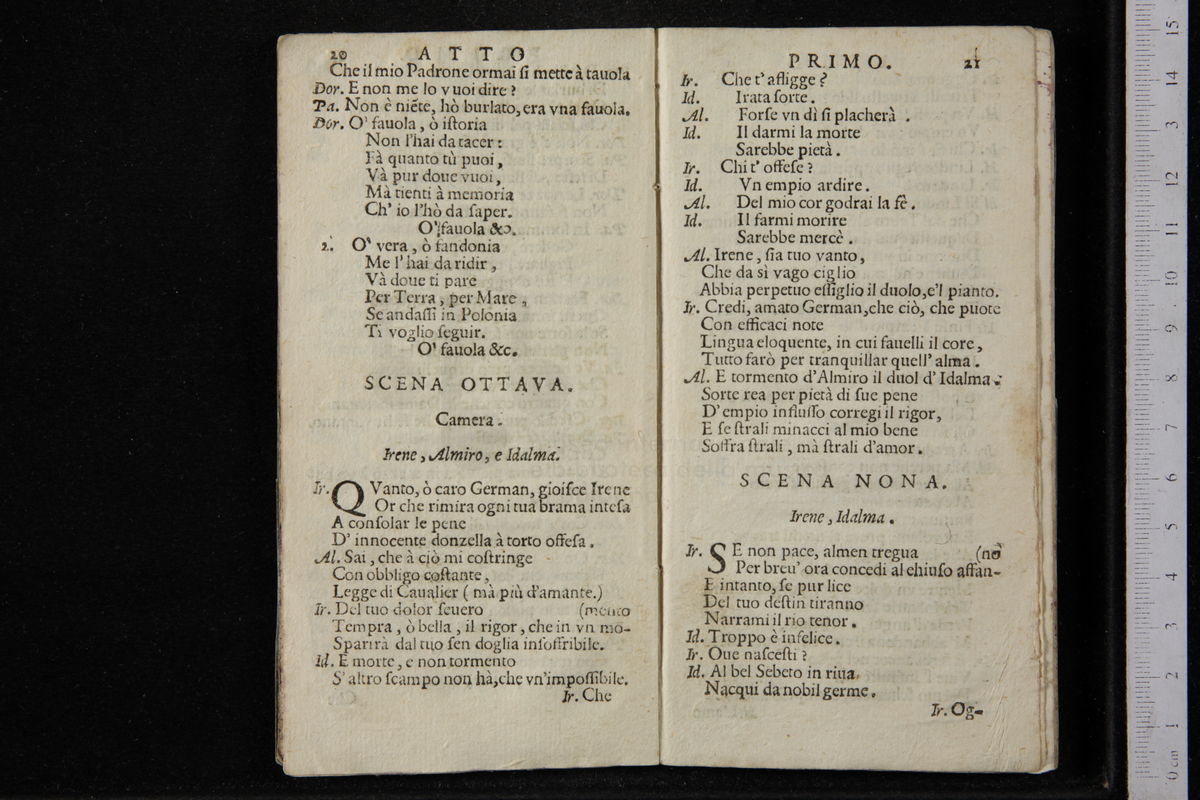 20 ATTO
Che il mio Padrone ormai ſi mette à tauola
Dor. E non me lo vuoi dire ?
Pa. Non è niẽte, hò burlato, era vna fauola.
Dor. O' fauola, ò iſtoria
Non l'hai da tacer :
Fà quanto tù puoi,
Và pur doue vuoi,
Mà tienti à memoria
Ch' io l'hò da ſaper.
O' fauola &c.
2. O' vera, ò fandonia
Me l' hai da ridir,
Và doue ti pare
Per Terra, per Mare,
Se andaſſi in Polonia
Ti voglio ſeguir.
O' fauola &c.
SCENA OTTAVA.
Camera.
Irene, Almiro, e Idalma.
Ir. QVanto, ò caro German, gioiſce Irene
Or che rimira ogni tua brama inteſa
A conſolar le pene
D' innocente donzella à torto offeſa.
Al. Sai, che à ciò mi coſtringe
Con obbligo coſtante,
Legge di Caualier ( mà più d'amante.)
Ir. Del tuo dolor ſeuero (mento
Tempra, ò bella, il rigor, che in vn mo-
Sparirà dal tuo ſen doglia inſoffribile.
Id. E morte, e non tormento
S' altro ſcampo non hà, che vn'impoſſibile.
Ir. Che
PRIMO. 21
Ir. Che t' afligge ?
Id. Irata ſorte.
Al. Forſe vn dì ſi placherà.
Id. Il darmi la morte
Sarebbe pietà.
Ir. Chi t' offeſe ?
Id. Vn empio ardire.
Al. Del mio cor godrai la fè.
Id. Il farmi morire
Sarebbe mercè.
Al. Irene, ſia tuo vanto,
Che da sì vago ciglio
Abbia perpetuo eſſiglio il duolo, e'l pianto.
Ir. Credi, amato German, che ciò, che puote
Con efficaci note
Lingua eloquente, in cui fauelli il core,
Tutto farò per tranquillar quell' alma.
Al. E tormento d'Almiro il duol d' Idalma:
Sorte rea per pietà di ſue pene
D' empio influſſo corregi il rigor,
E ſe ſtrali minacci al mio bene
Soffra ſtrali, mà ſtrali d'amor.
SCENA NONA.
Irene, Idalma.
Ir. SE non pace, almen tregua (nò
Per breu' ora concedi al chiuſo affan-
E intanto, ſe pur lice
Del tuo deſtin tiranno
Narrami il rio tenor.
Id. Troppo è infelice.
Ir. Oue naſceſti ?
Id. Al bel Sebeto in riua
Nacqui da nobil germe.
Ir. Og-
15
14
13
12
11
10
9
8
7
6
5
4
3
2
1
0 cm